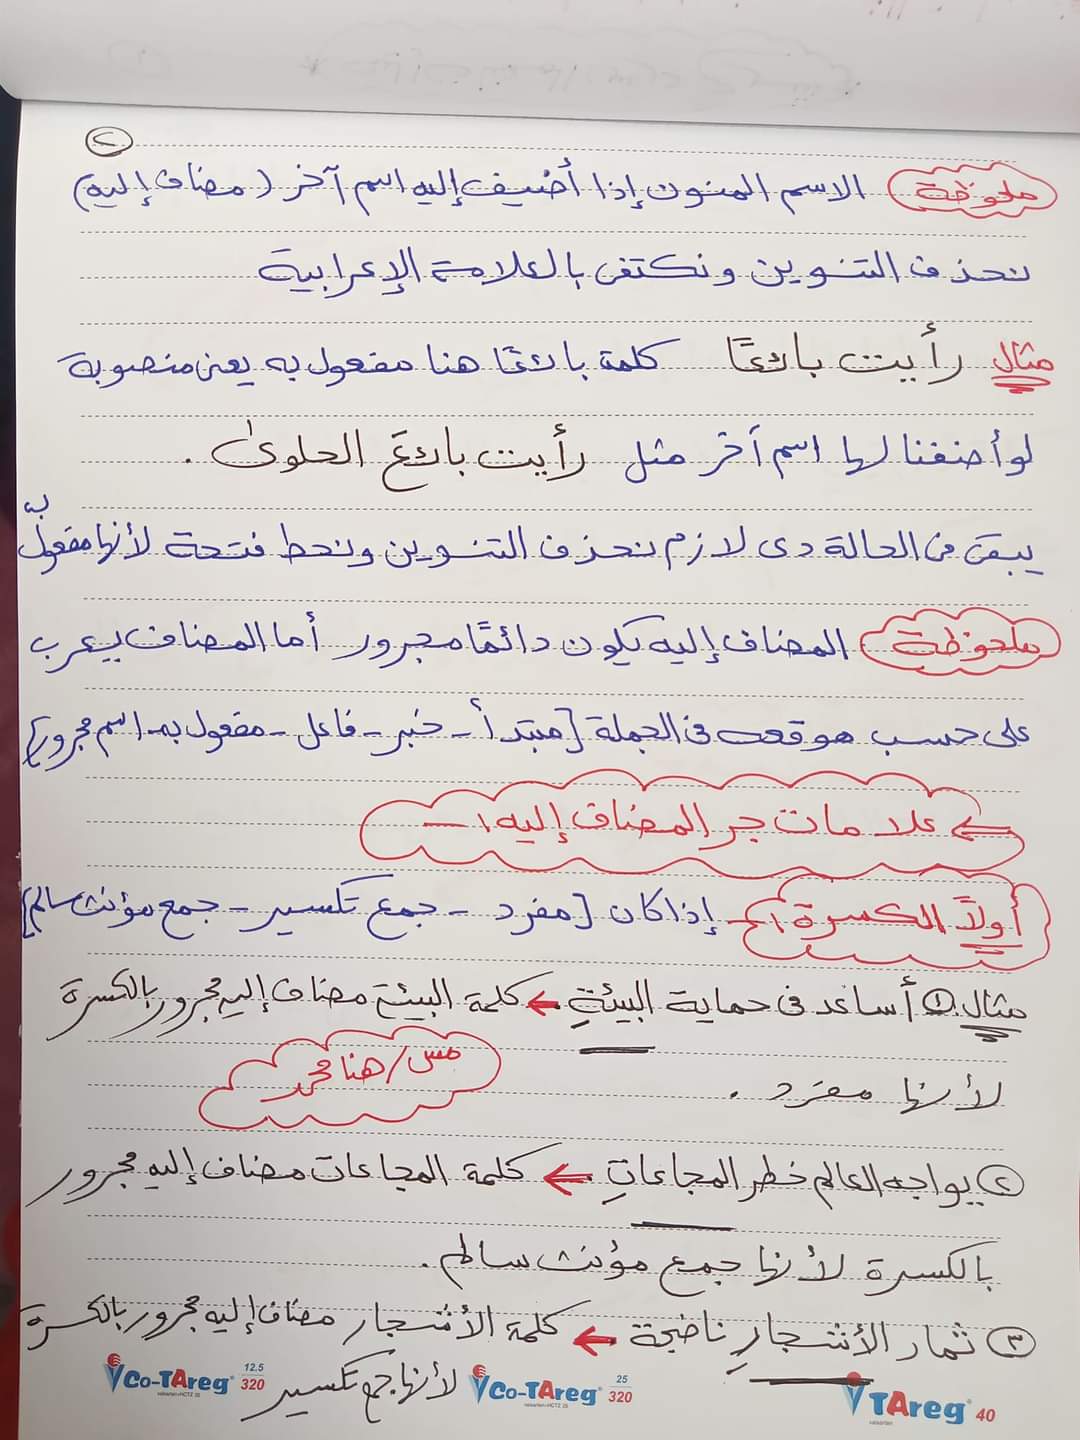 ٢
ملحوظة الاسم المنون إذا أضيف إليه اسم آخر (مضاف إليه)
نحذف التنوين ونكتفى بالعلامة الإعرابية
مثال رأيت بائعًا كلمة بائعًا هنا مفعول به يعنى منصوبة
لو أضفنا لها اسم آخر مثل رأيت بائعَ الحلوى .
يبقى فى الحالة دى لازم نحذف التنوين ونحط فتحة لأنها مفعول به
ملحوظة المضاف إليه يكون دائمًا مجرور أما المضاف يعرب
على حسب موقعه فى الجملة [مبتدأ - خبر - فاعل - مفعول به - اسم مجرور]
علامات جر المضاف إليه :-
أولاً الكسرة :- إذا كان [مفرد - جمع تكسير - جمع مؤنث سالم]
مثال ١ أساعد فى حماية البيئةِ ← كلمة البيئة مضاف إليه مجرور بالكسرة
لأنها مفرد .
مس/ هنا محمد
٢ يواجه العالم خطر المجاعاتِ ← كلمة المجاعات مضاف إليه مجرور
بالكسرة لأنها جمع مؤنث سالم .
٣ ثمار الأشجارِ ناضجة ← كلمة الأشجار مضاف إليه مجرور بالكسرة
لأنها جمع تكسير
Co-TAreg 12.5/320
valsartan-HCTZ
Co-TAreg 25/320
valsartan-HCTZ
TAreg 40
valsartan